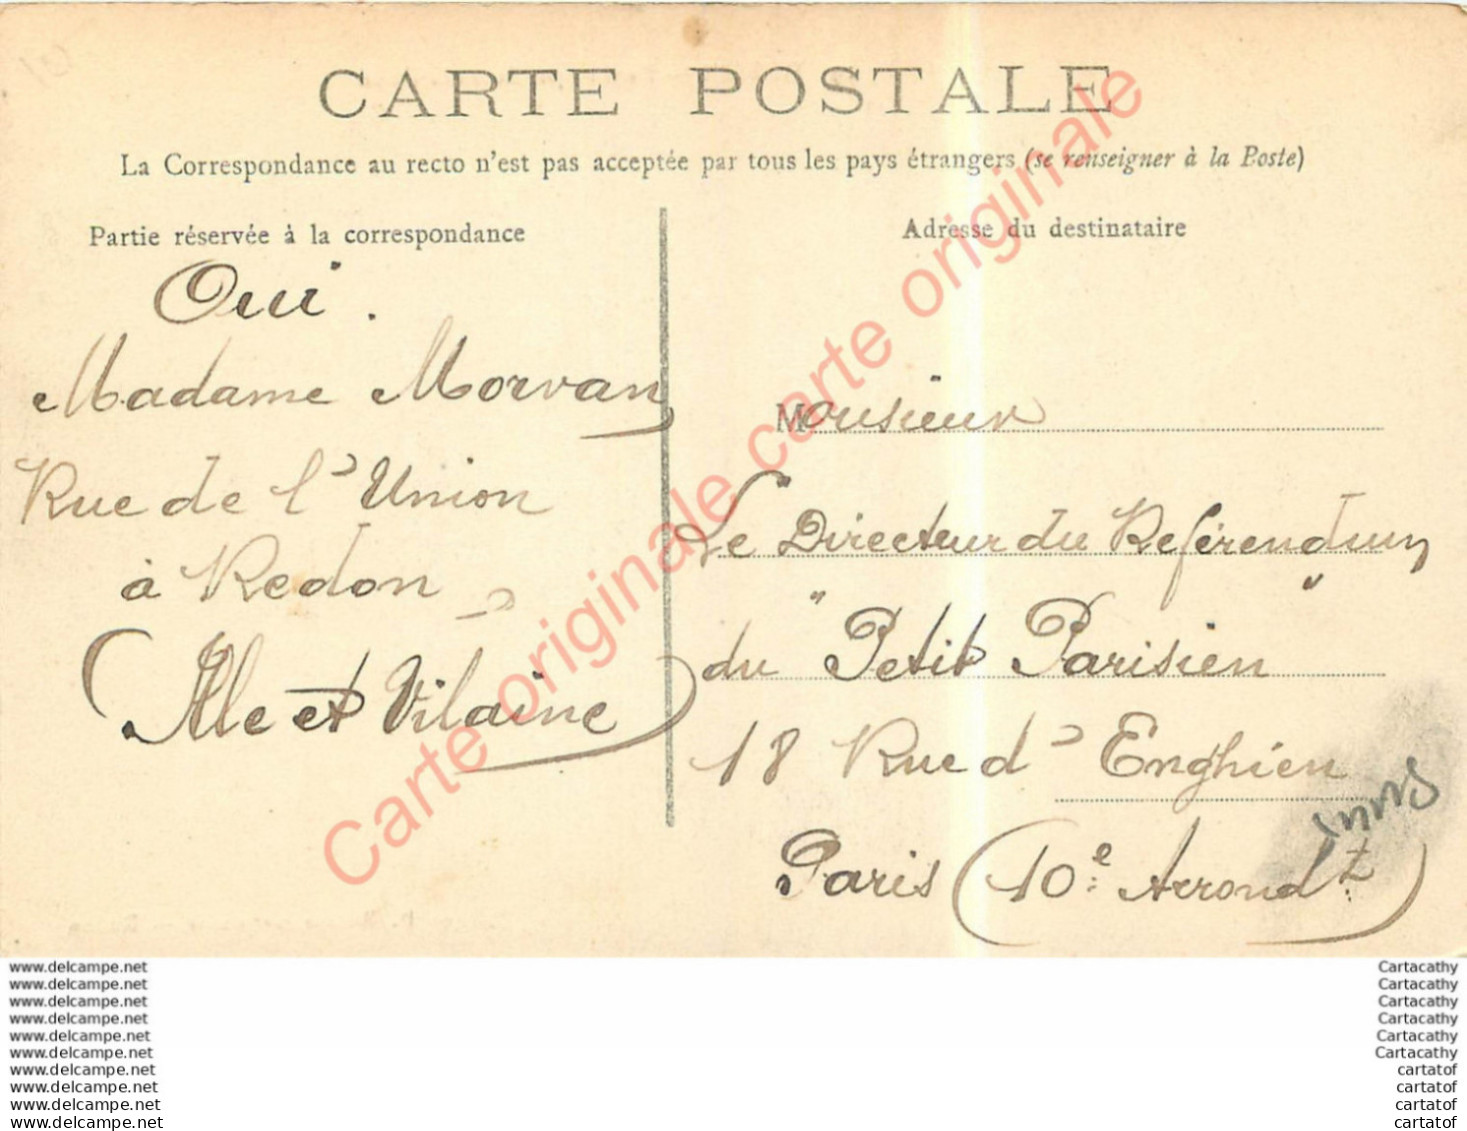 CARTE POSTALE
La Correspondance au recto n'est pas acceptée par tous les pays étrangers (se renseigner à la Poste)
Partie réservée à la correspondance
Oui.
Madame Morvan
Rue de l'Union
à Redon
(Ille et Vilaine)
Adresse du destinataire
Monsieur
Le Directeur du Référendum
du "Petit Parisien"
18 Rue d'Enghien
Paris (10e Arrondt)
Carte originale carte originale
www.delcampe.net
www.delcampe.net
www.delcampe.net
www.delcampe.net
www.delcampe.net
www.delcampe.net
www.delcampe.net
www.delcampe.net
www.delcampe.net
www.delcampe.net
Cartacathy
Cartacathy
Cartacathy
Cartacathy
Cartacathy
Cartacathy
cartatof
cartatof
cartatof
cartatof